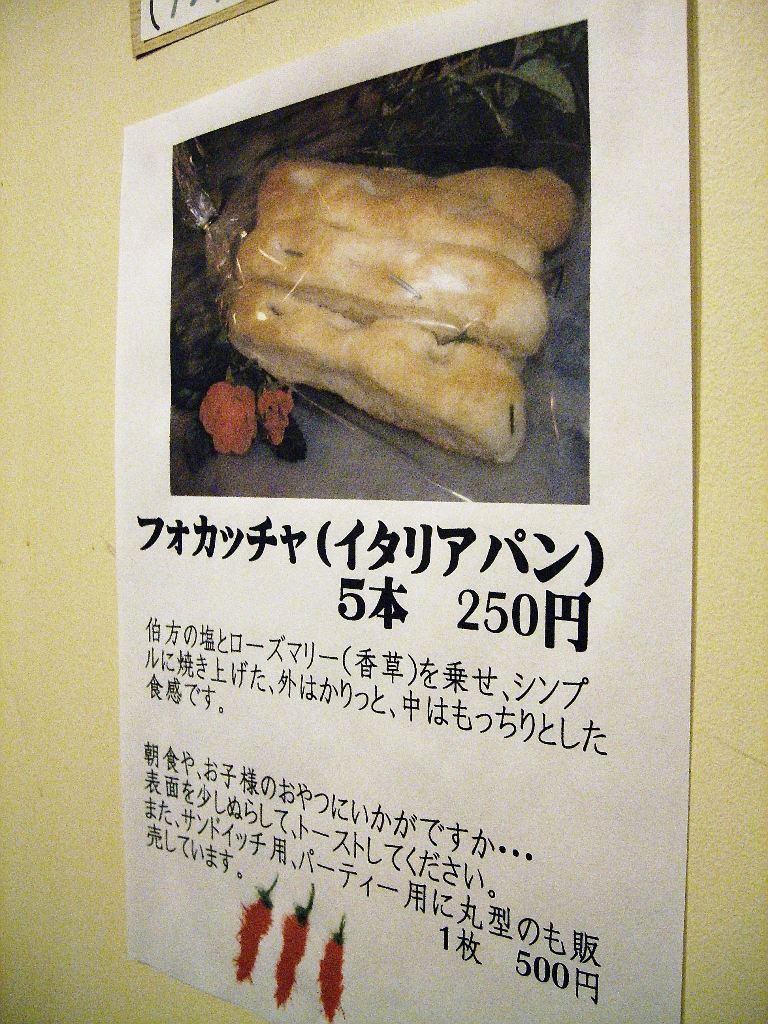 フォカッチャ(イタリアパン)
5本 250円
伯方の塩とローズマリー(香草)を乗せ、シンプ
ルに焼き上げた、外はかりっと、中はもっちりとした
食感です。
朝食や、お子様のおやつにいかがですか・・・
表面を少しぬらして、トーストしてください。
また、サンドイッチ用、パーティー用に丸型のも販
売しています。
1枚 500円